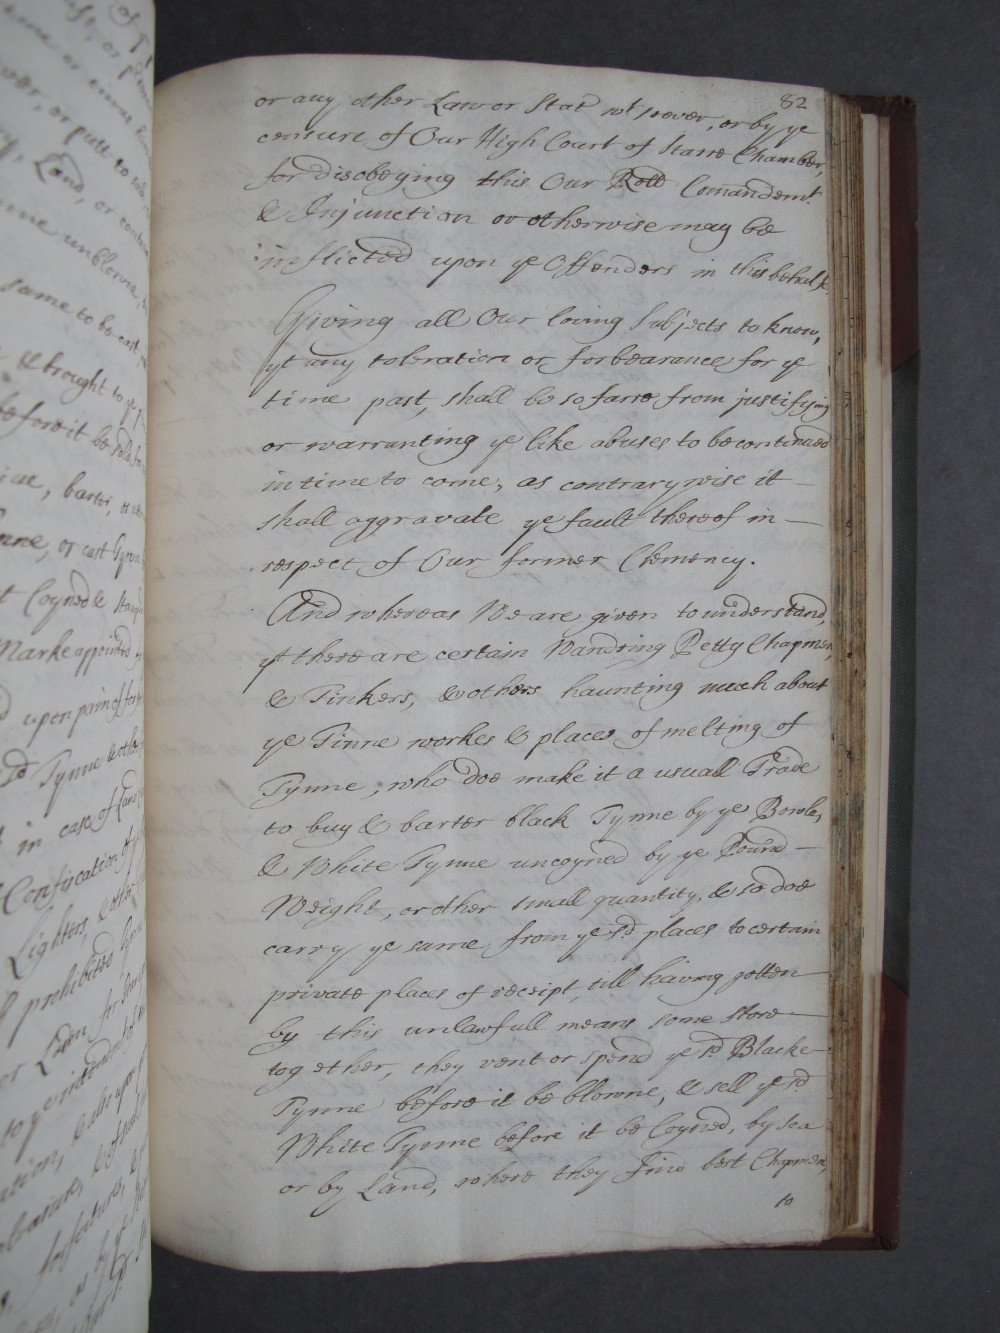 82
or any other Law or Stat wtsoever, or by ye
censure of Our High Court of Starre Chamber,
for disobeying this Our Comandemt
& Injunction or otherwise may be
inflicted upon ye Offenders in this behalfe.
Giving all Our loving Subjects to know,
yt any toleration or forbearance for ye
time past, shall be so farre from justifying
or warranting ye like abuses to be continued
in time to come, as contrarywise it —
shall aggravate ye fault thereof in —
respect of Our former Clemency.
And whereas We are given to understand,
yt there are certain Wandring Petty Chapmen,
& Tinkers, & others haunting much about
ye Tinne workes & places of melting of
Tynne, who doe make it a usuall Trade
to buy & barter black Tynne by ye Bowle,
& White Tynne uncoyned by ye Pound —
Weight, or other small quantity, & so doe
carry ye same from ye sd places to certain
private places of receipt, till having gotten
by this unlawfull means some store —
together, they vent or spend ye sd Blacke
Tynne before it be blowne, & sell ye sd
White Tynne before it be Coyned, by sea
or by Land, where they find best Chapmen,
to
same to be cast,
& brought to ye
before it be sold
barter, or
or cast Tynne
Coyned & Stamp
Marke appointed
upon pain of
sd Tynne & other
in case of Land
Confiscation of
Lighters, & other
prohibited